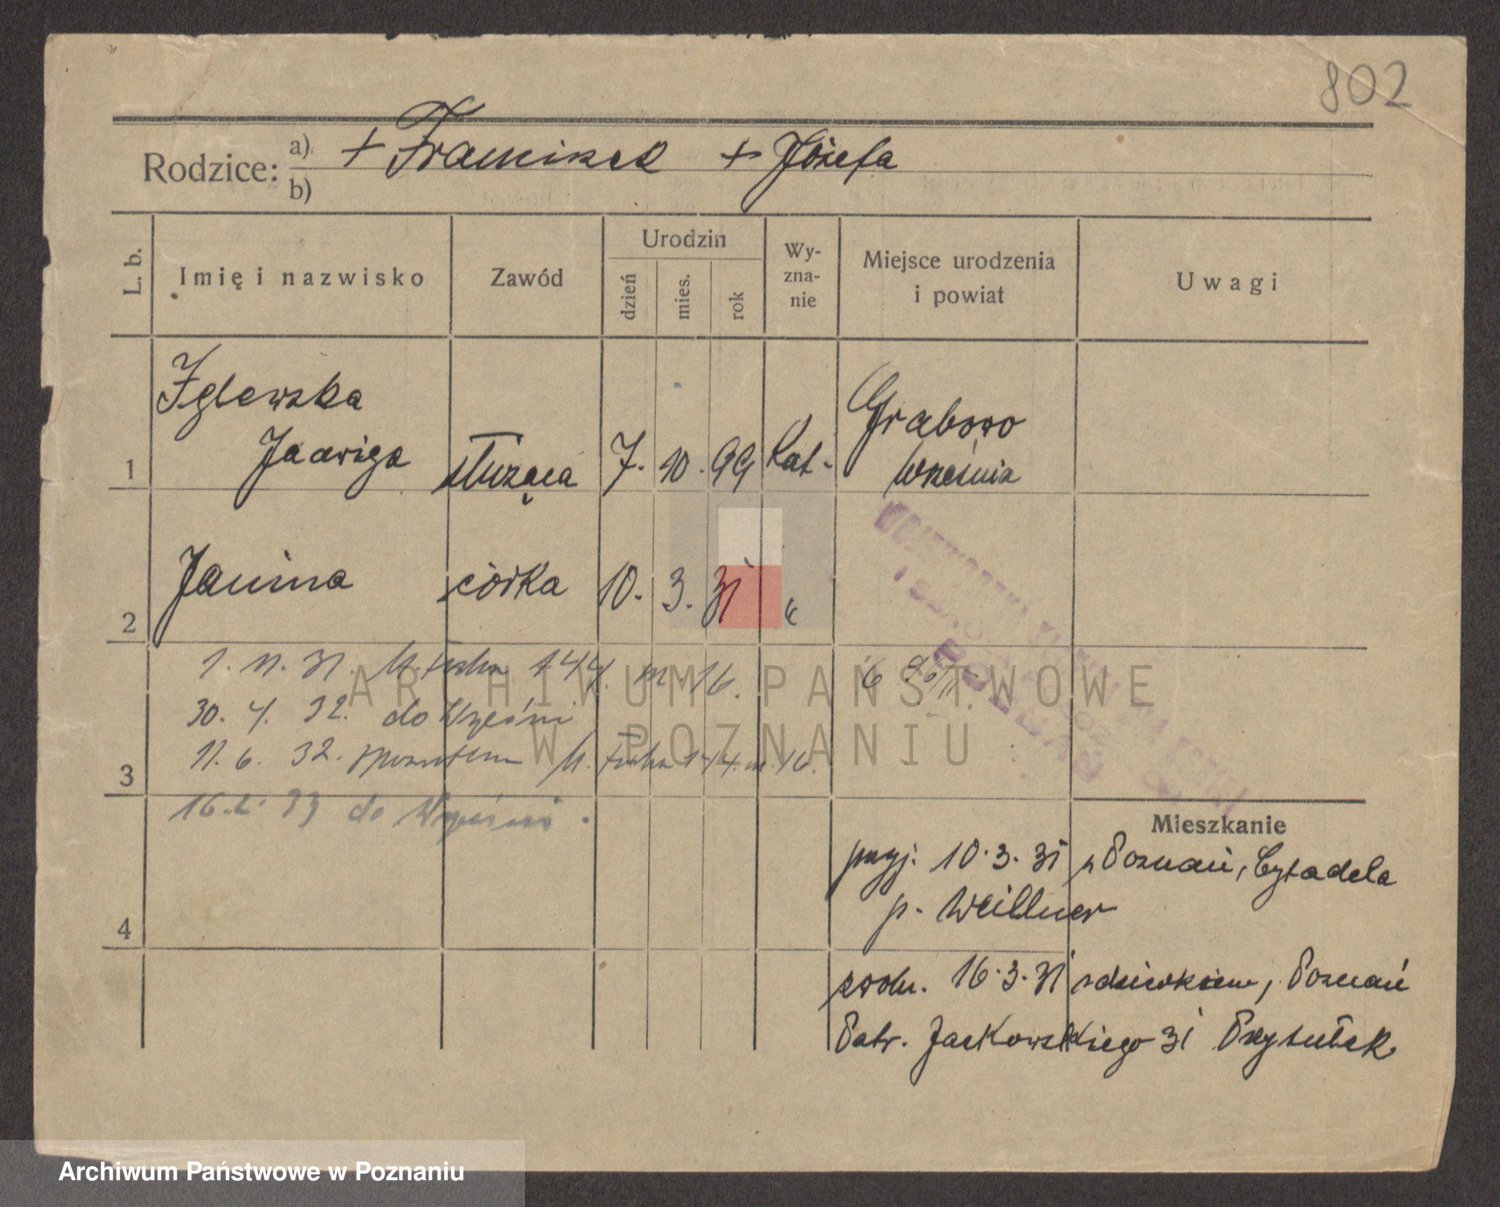 802
Rodzice: a) + Franciszek + Józefa
b)
L. b.
Imię i nazwisko
Zawód
Urodzin
dzień
mies.
rok
Wy-
zna-
nie
Miejsce urodzenia
i powiat
Uwagi
1
Iglewska
Jadwiga
służąca
7. 10. 99
kat.
Grabowo
Września
2
Janina
córka
10. 3. 31
"
1. 11. 31. 144 m 16.
30. 4. 32. do Wrześni
3
11. 6. 32. m. 16.
16. 33 do Wrześni.
ARCHIWUM PAŃSTWOWE
W POZNANIU
Mieszkanie
4
przyj. 10.3.31 Poznań, Cytadela
p. Weillner
zwoln. 16.3.31 z dzieckiem, Poznań
Patr. Jackowskiego 31 Przytułek
Archiwum Państwowe w Poznaniu